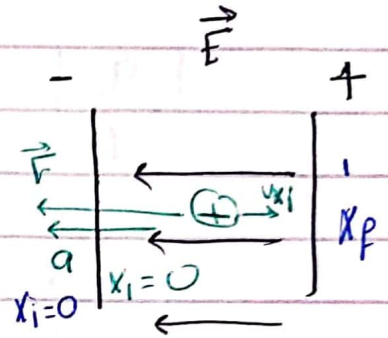 E
- +
F
vxi
+
xf
a
xi=0
xi=0